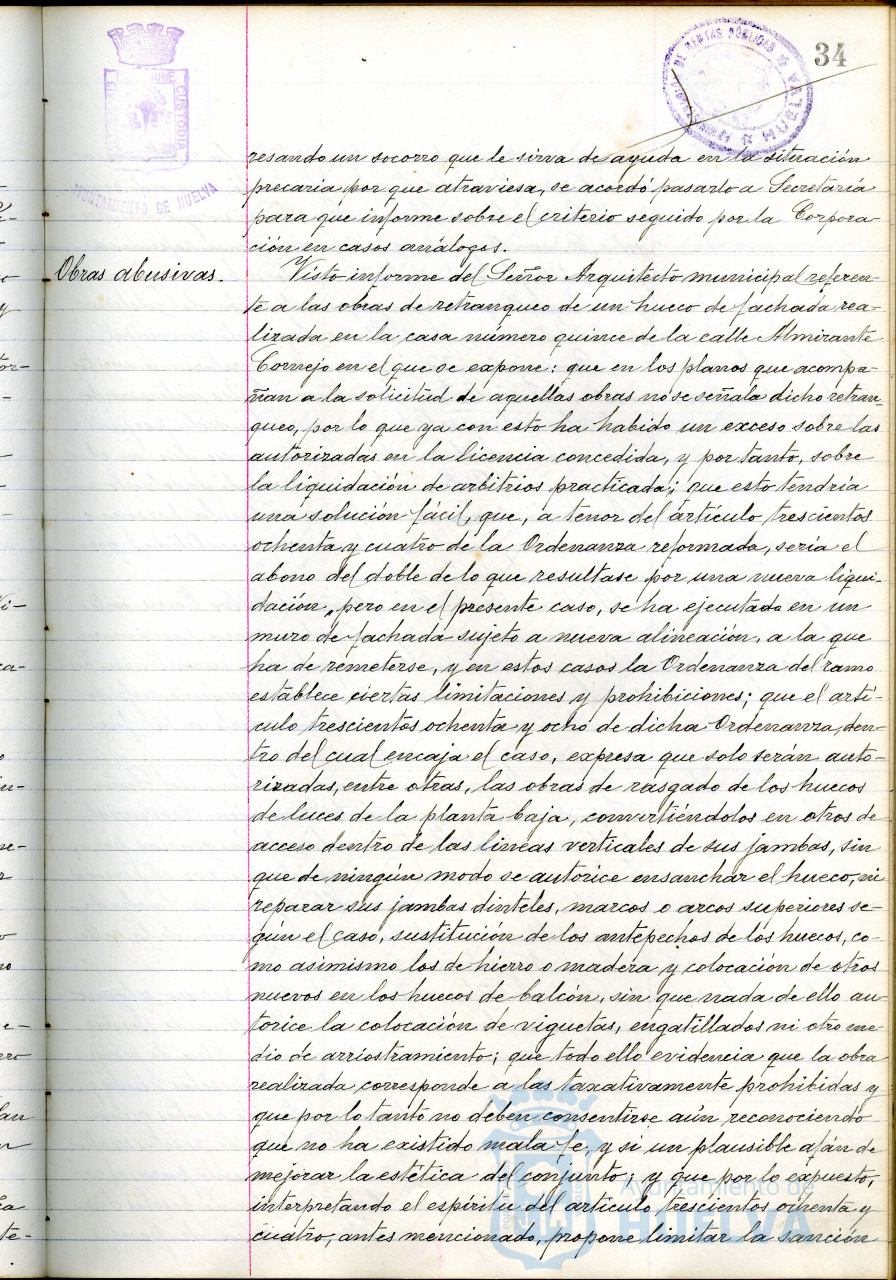 34
AYUNTAMIENTO DE HUELVA
CUSTODIA
DE RENTAS PÚBLICAS
HUELVA
resando un socorro que le sirva de ayuda en la situación
precaria por que atraviesa, se acordó pasarlo a Secretaría
para que informe sobre el criterio seguido por la Corpora-
ción en casos análogos.
Obras abusivas.
Visto informe del Señor Arquitecto municipal referen-
te a las obras de retranqueo de un hueco de fachada rea-
lizada en la casa número quince de la calle Almirante
Cornejo en el que se expone: que en los planos que acompa-
ñan a la solicitud de aquellas obras no se señala dicho retran-
queo, por lo que ya con esto ha habido un exceso sobre las
autorizadas en la licencia concedida, y por tanto, sobre
la liquidación de arbitrios practicada; que esto tendría
una solución fácil, que, a tenor del artículo trescientos
ochenta y cuatro de la Ordenanza reformada, sería el
abono del doble de lo que resultase por una nueva liqui-
dación, pero en el presente caso, se ha ejecutado en un
muro de fachada sujeto a nueva alineación, a la que
ha de remeterse, y en estos casos la Ordenanza del ramo
establece ciertas limitaciones y prohibiciones; que el artí-
culo trescientos ochenta y ocho de dicha Ordenanza, den-
tro del cual encaja el caso, expresa que solo serán auto-
rizadas, entre otras, las obras de rasgado de los huecos
de luces de la planta baja, convirtiéndolos en otros de
acceso dentro de las lineas verticales de sus jambas, sin
que de ningún modo se autorice ensanchar el hueco, ni
reparar sus jambas dinteles, marcos o arcos superiores se-
gún el caso, sustitución de los antepechos de los huecos, co-
mo asimismo los de hierro o madera y colocación de otros
nuevos en los huecos de balcón, sin que nada de ello au-
torice la colocación de viguetas, engatillados ni otro me-
dio de arriostramiento; que todo ello evidencia que la obra
realizada corresponde a las taxativamente prohibidas y
que por lo tanto no deben consentirse aún reconociendo
que no ha existido mala fe, y si un plausible afán de
mejorar la estética del conjunto; y que por lo expuesto,
interpretando el espíritu del artículo trescientos ochenta y
cuatro, antes mencionado, propone limitar la sanción
Ayuntamiento de
HUELVA